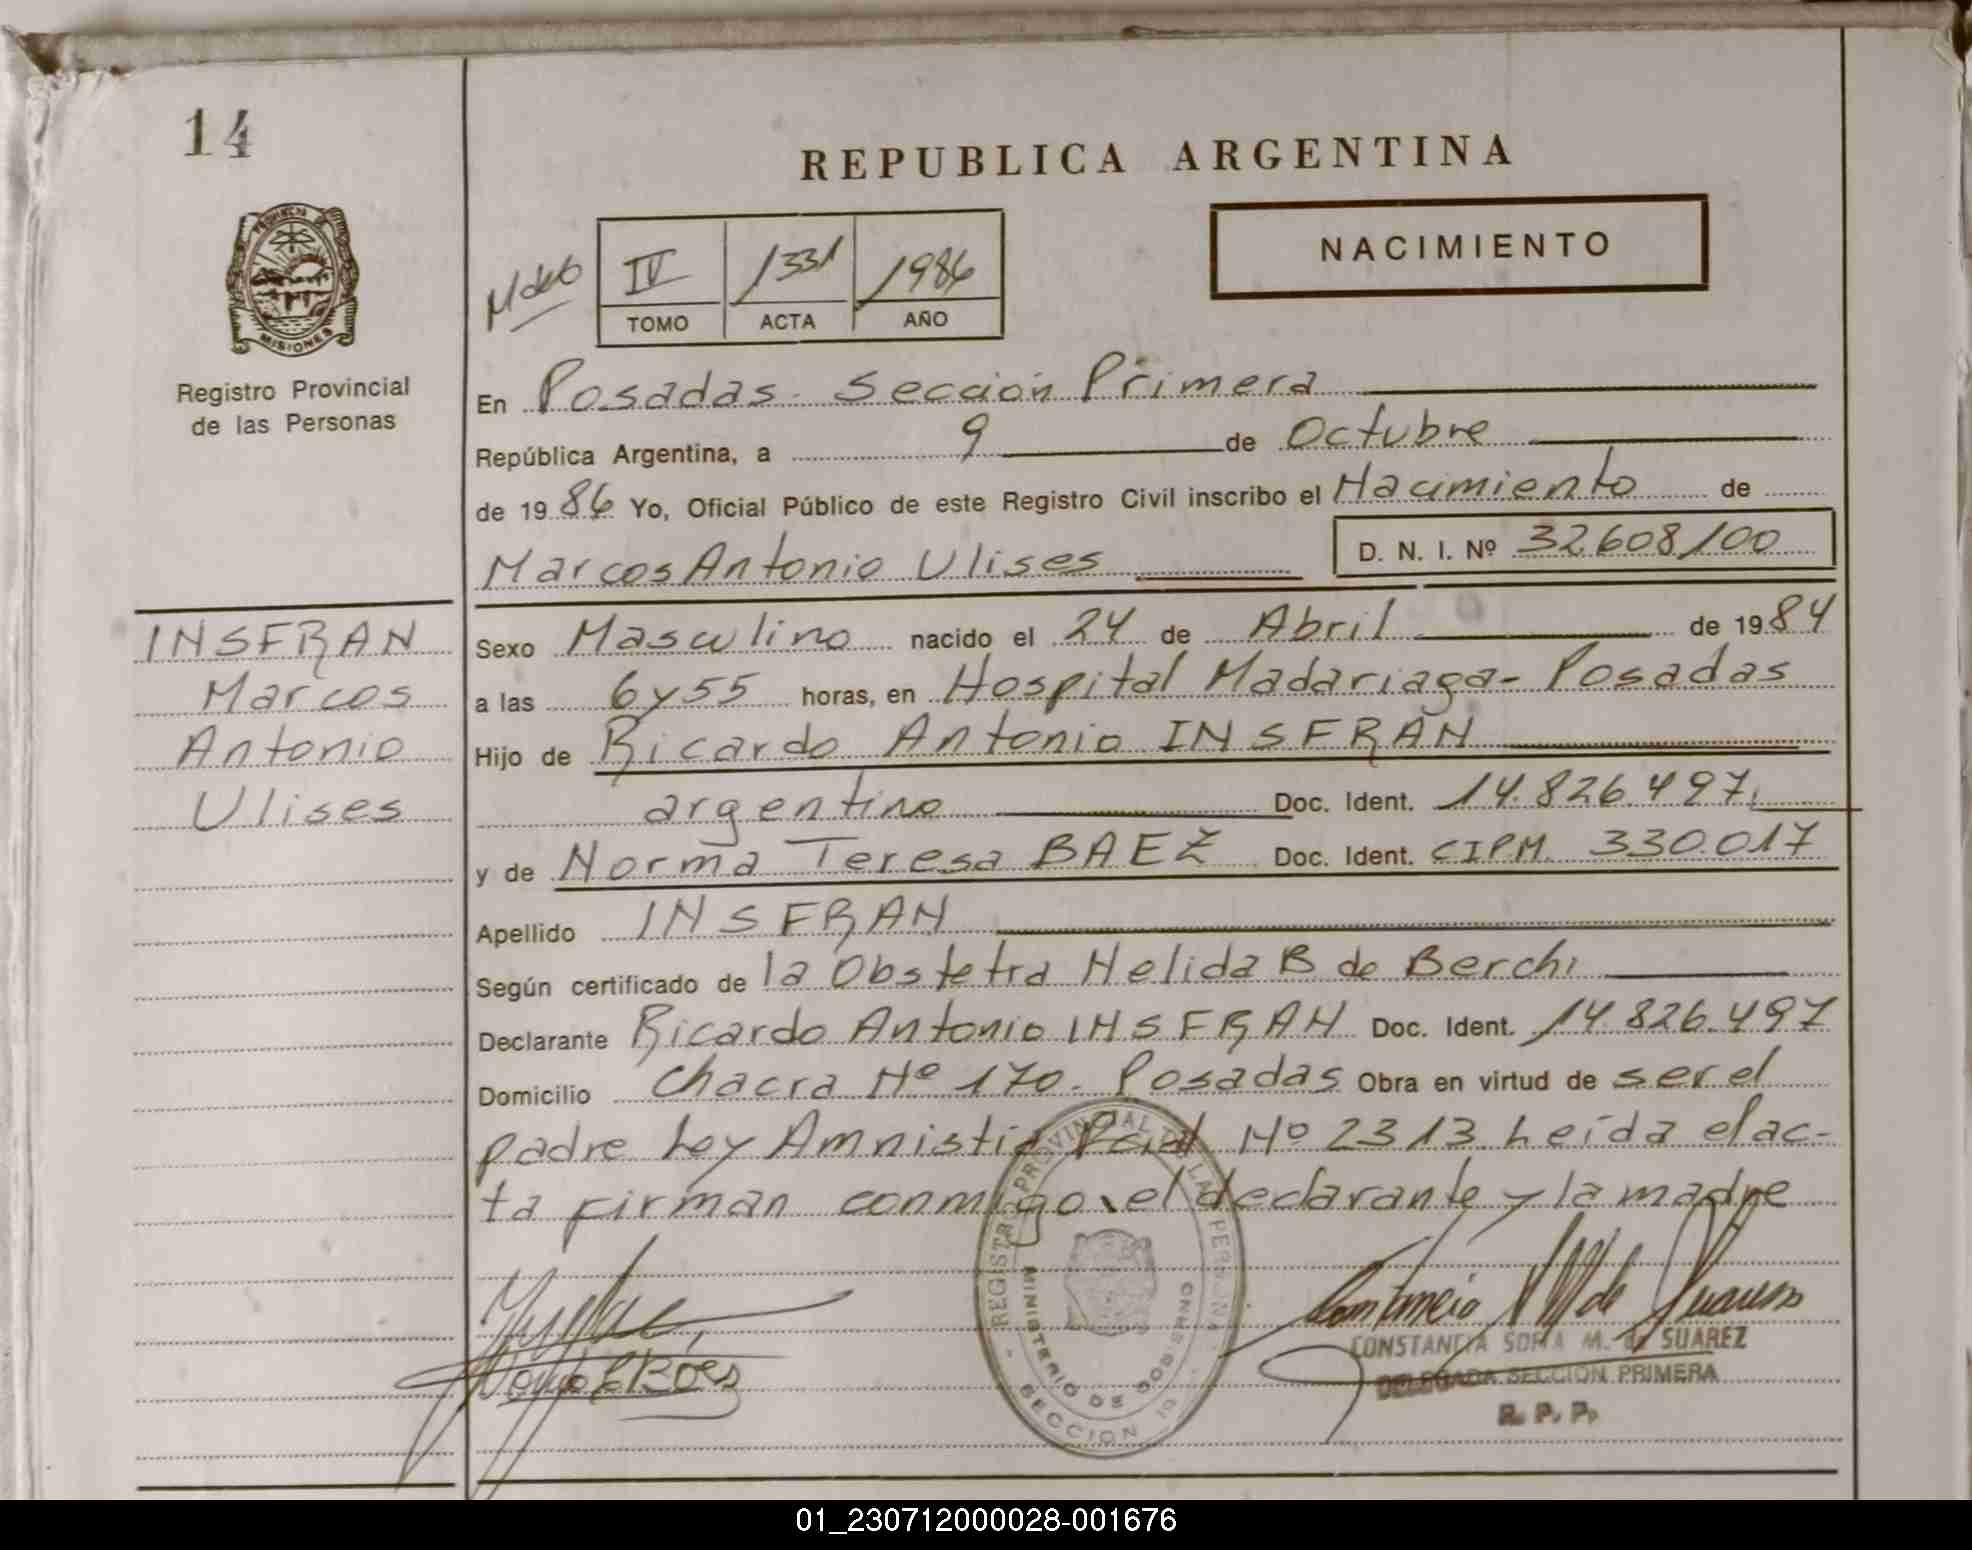 14
REPUBLICA ARGENTINA
NACIMIENTO
PROVINCIA DE
MISIONES
Registro Provincial
de las Personas
IV 1331 1986
TOMO ACTA AÑO
En Posadas - Sección Primera
República Argentina, a 9 de Octubre
de 1986 Yo, Oficial Público de este Registro Civil inscribo el Nacimiento de
Marcos Antonio Ulises D. N. I. Nº 32608100
INSFRAN
Marcos
Antonio
Ulises
Sexo Masculino nacido el 24 de Abril de 1984
a las 6 y 55 horas, en Hospital Madariaga - Posadas
Hijo de Ricardo Antonio INSFRAN
argentino Doc. Ident. 14.826.497.
y de Norma Teresa BAEZ Doc. Ident. CIPM. 330.017
Apellido INSFRAN
Según certificado de la Obstetra Nelida B de Berchi
Declarante Ricardo Antonio INSFRAN Doc. Ident. 14.826.497
Domicilio Chacra Nº 170. Posadas Obra en virtud de ser el
padre Ley Amnistia Pcial Nº 2313 Leída el ac-
ta firman conmigo el declarante y la madre
REGISTRO PROVINCIAL DE LAS PERSONAS
MINISTERIO DE GOBIERNO
SECCION 1º
CONSTANCIA SOFIA M. de SUAREZ
DELEGADA SECCION PRIMERA
R. P. P.
01_230712000028-001676